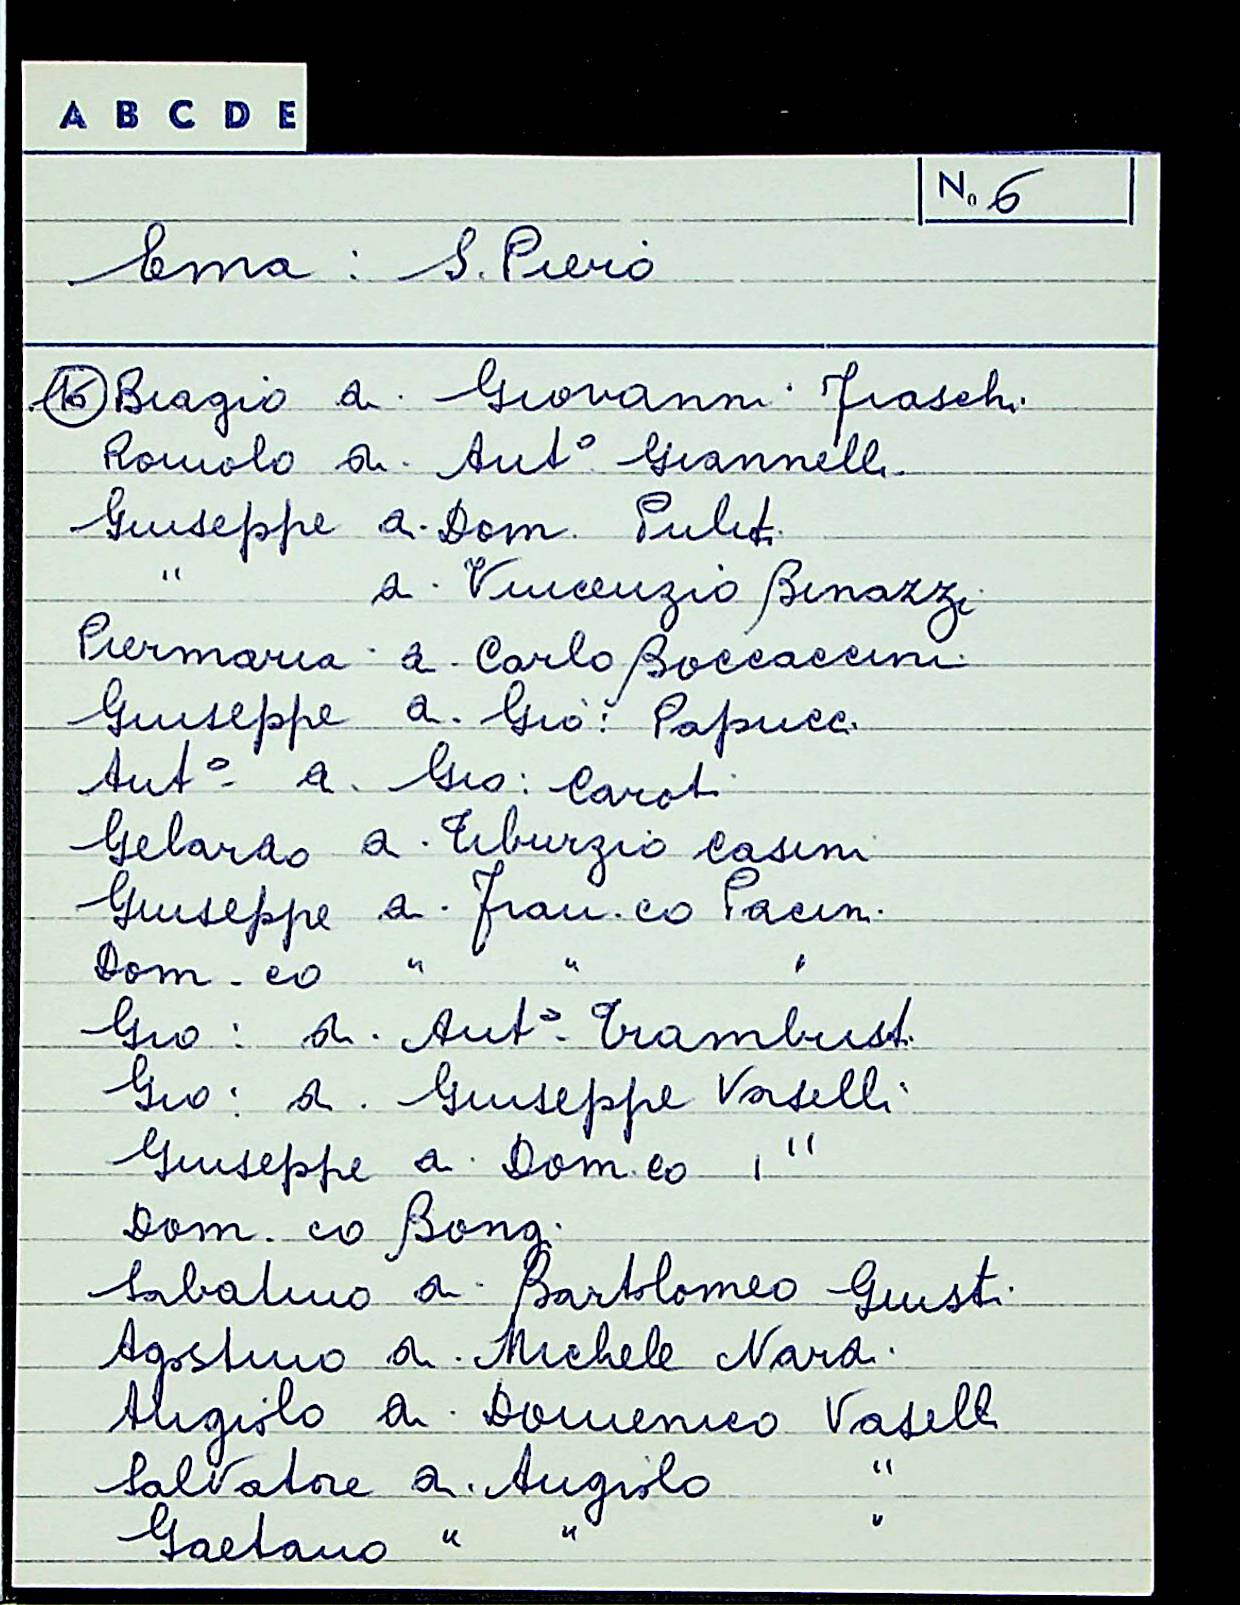 A B C D E
No 6
Ema : S. Piero
16 Biagio di Giovanni Fraschi
Romolo di Antº Giannelli
Giuseppe di Dom. Puliti
" di Vincenzio Binazzi
Piermaria di Carlo Boccaccini
Giuseppe di Gio: Papucci
Antº di Gio: Caroti
Gelardo di Tiburzio Casini
Giuseppe di Fran.co Pacini
Dom.co " " "
Gio: di Antº Trambusti
Gio: di Giuseppe Vaselli
Giuseppe di Dom.co "
Dom.co Bongi
Sabatino di Bartolomeo Giusti
Agostino di Michele Nardi
Angiolo di Domenico Vaselli
Salvatore di Angiolo "
Gaetano " " "